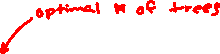 optimal # of trees